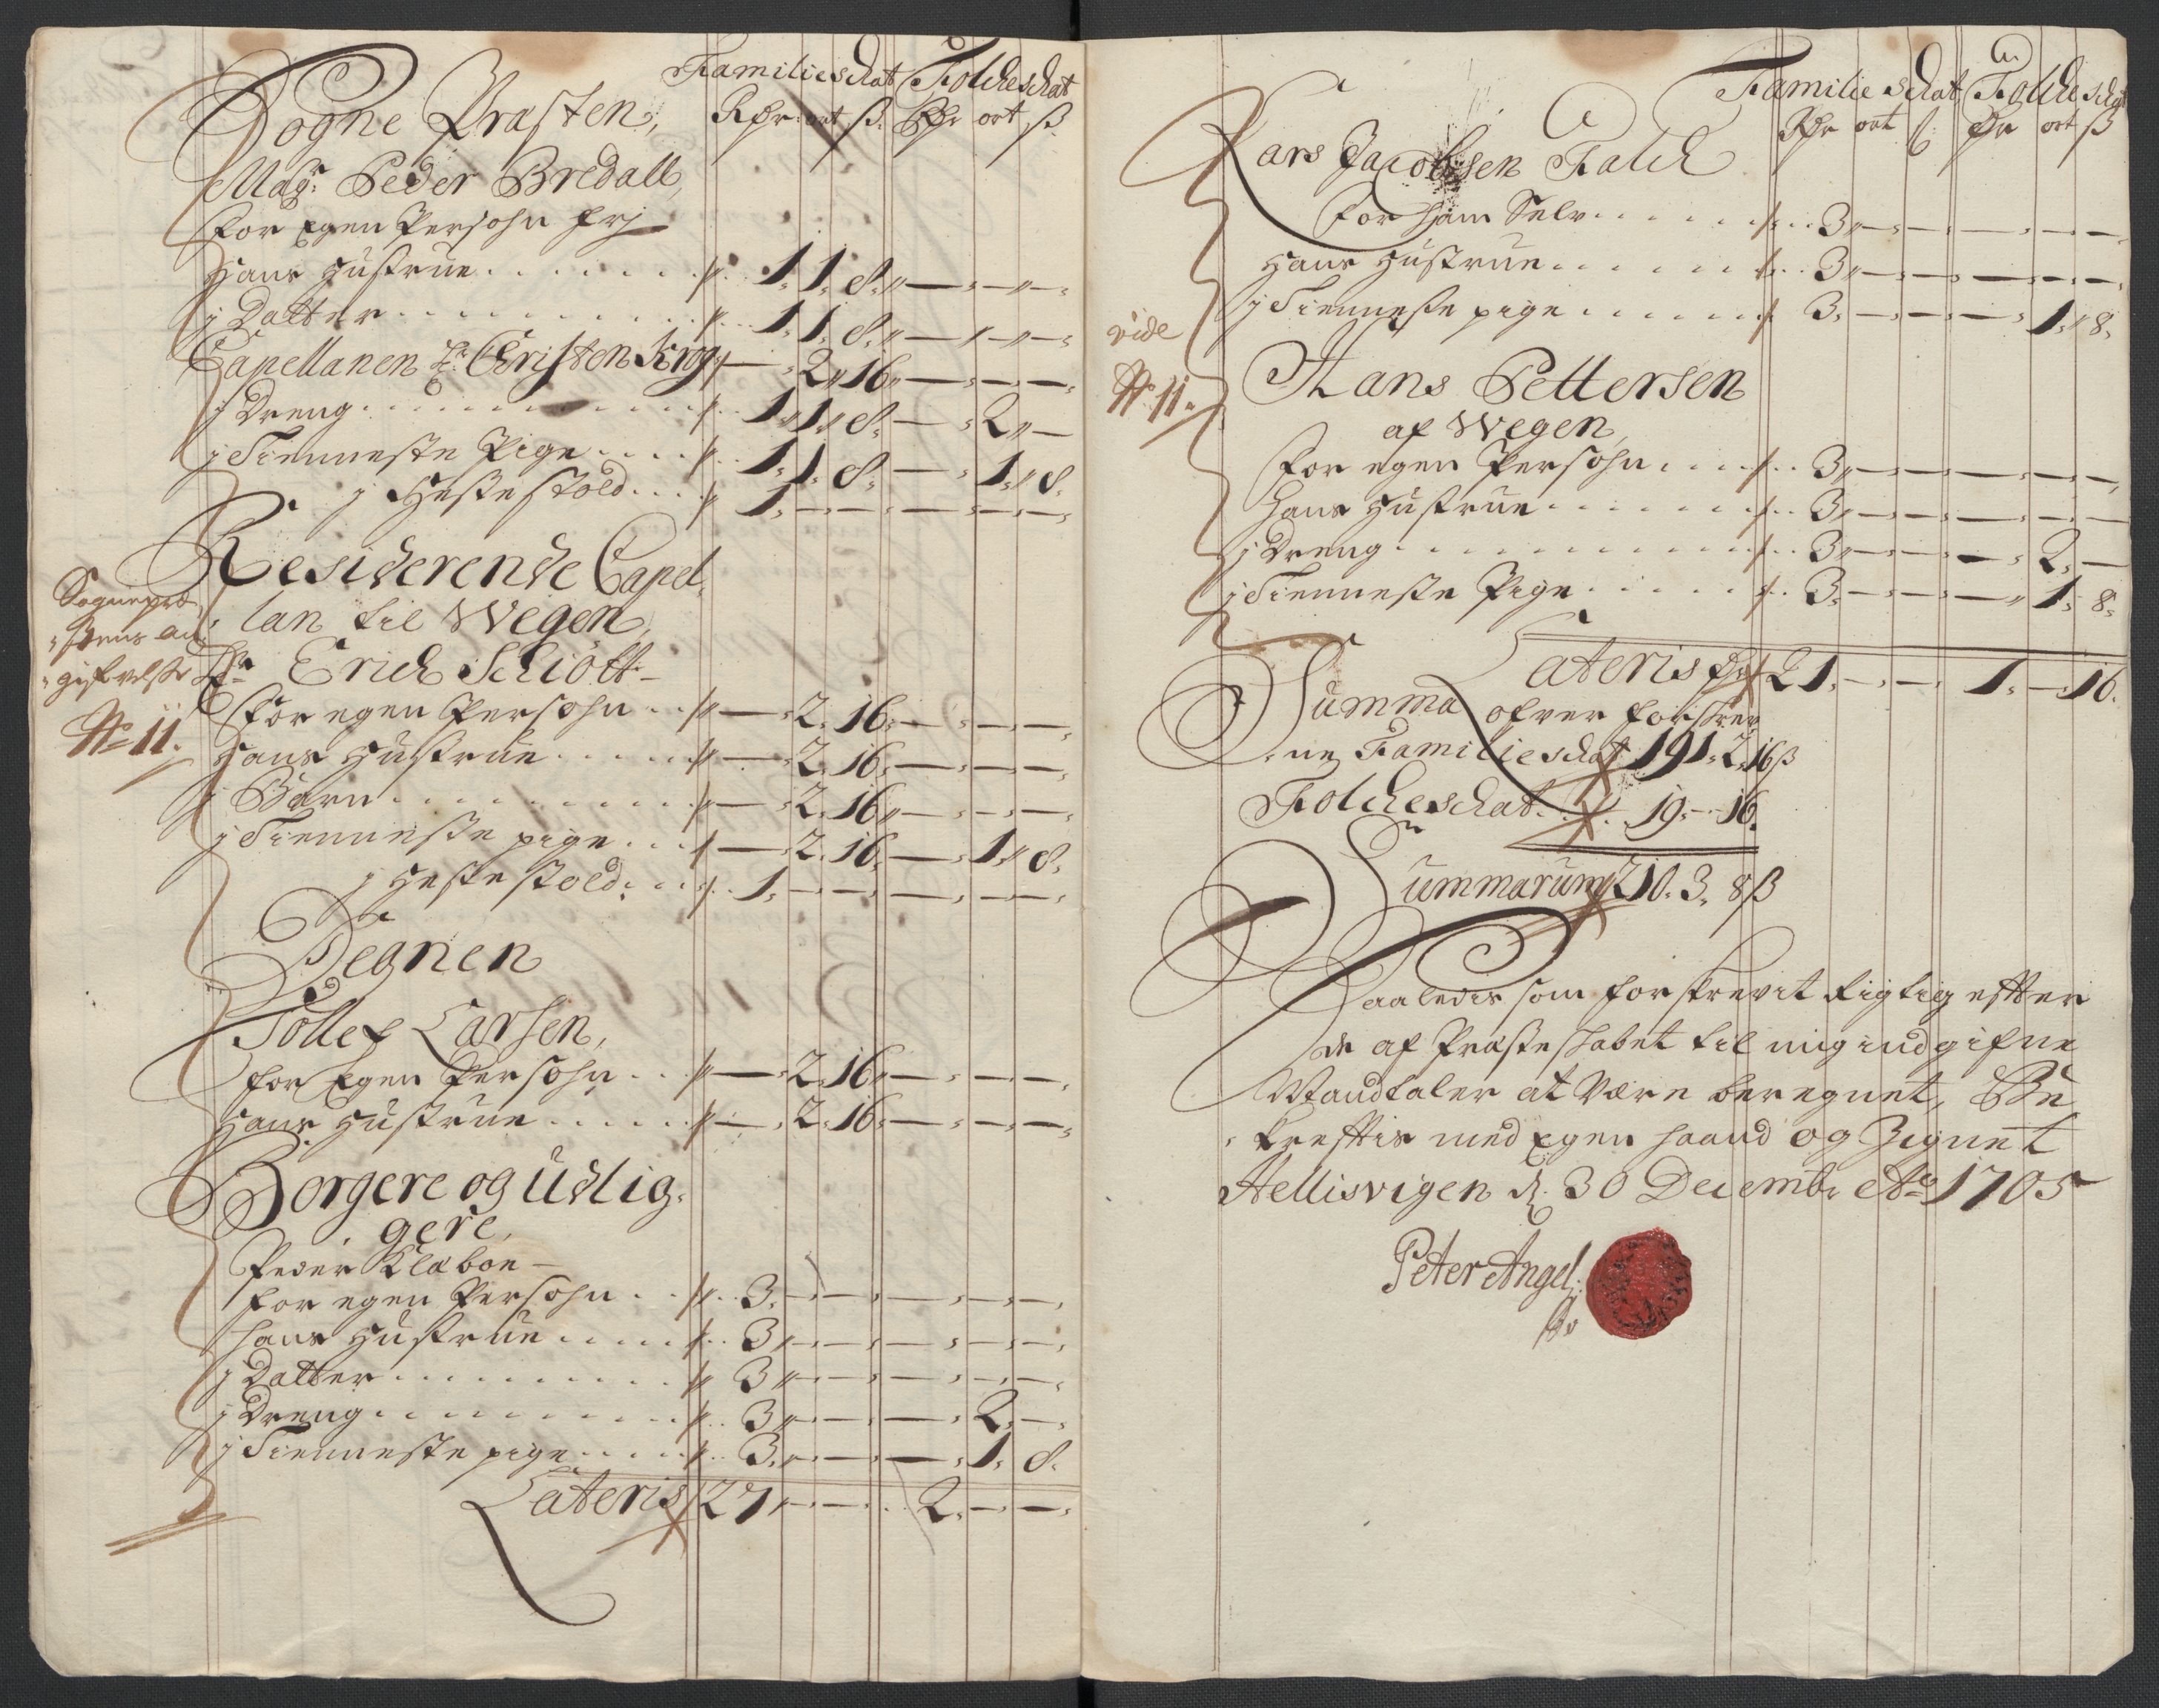 Familie schat Folcheschat
Sogne Præsten, Rdr ort ß. Rdr ort ß
Magr. Peder Bredall,
for Egen Persohn frj
Hans Hustrue . . . . . . . 1. 1. 8. — — —
j Datter . . . . . . . . . 1. 1. 8. — — —
Capellanen Hr. Christen Krog — 2. 16. — — —
j Dreng . . . . . . . . . 1. 1. 8. — 2. —
j Tienneste Pige . . . . 1. 1. 8. — 1. 8.
j Hesteskoed . . . 1. — — — — —
Residerende Capel-
lan til Wegen,
Hr Erich Schiött
Sognepræ-
stens an-
gifvelsse
No 11.
for egen Persohn . . — 2. 16. — — —
Hans Hustrue . . . . . — 2. 16. — — —
j Barn . . . . . . . . — 2. 16. — — —
j Tienneste pige . . . — 2. 16. — 1. 8.
j Hesteskoed . . . 1. — — — — —
Degnen
Tollef Larsen,
for Egen Persohn . . — 2. 16. — — —
Hans Hustrue . . . . . — 2. 16. — — —
Borgere og Udlig-
gere,
Peder Klæboe —
for egen Persohn . . 3. — — — — —
hans Hustrue . . . . . 3. — — — — —
j Datter . . . . . . . 3. — — — — —
j Dreng . . . . . . . 3. — — — 2. —
j Tienneste pige . . . . 3. — — — 1. 8.
Lateris 27 — — 2. — —
Familie schat Folcheschat
Rdr ort ß Rdr ort ß
Lars Jacobsen Falch
for ham Selv . . . . . 3. — — — — —
Hans Hustrue . . . . . . 3. — — — — —
j Tienneste pige . . . . . 3. — — — 1. 8.
vide
No 11.
Hans Pettersen
af Wegen,
for egen Persohn . . . . 3. — — — — —
hans Hustrue . . . . . . 3. — — — — —
j Dreng . . . . . . . . 3. — — — 2. —
j Tienneste Pige . . . . . 3. — — — 1. 8.
Lateris 21. — — 1. — 16.
Summa ofver forskrev-
ne Familie schat 191. 2. 16 ß
Folcheschat . . . 19. — 16.
Summarum 210. 3. 8 ß
Saaledis som forskrevit Rigtig efter
de af Præsteskabet til mig indgifne
Mandtaler at være beregnet, Be-
kreftis med Egen haand og Zignet
Hellisvigen d. 30 Decembr Ao 1705
Peter Angel: